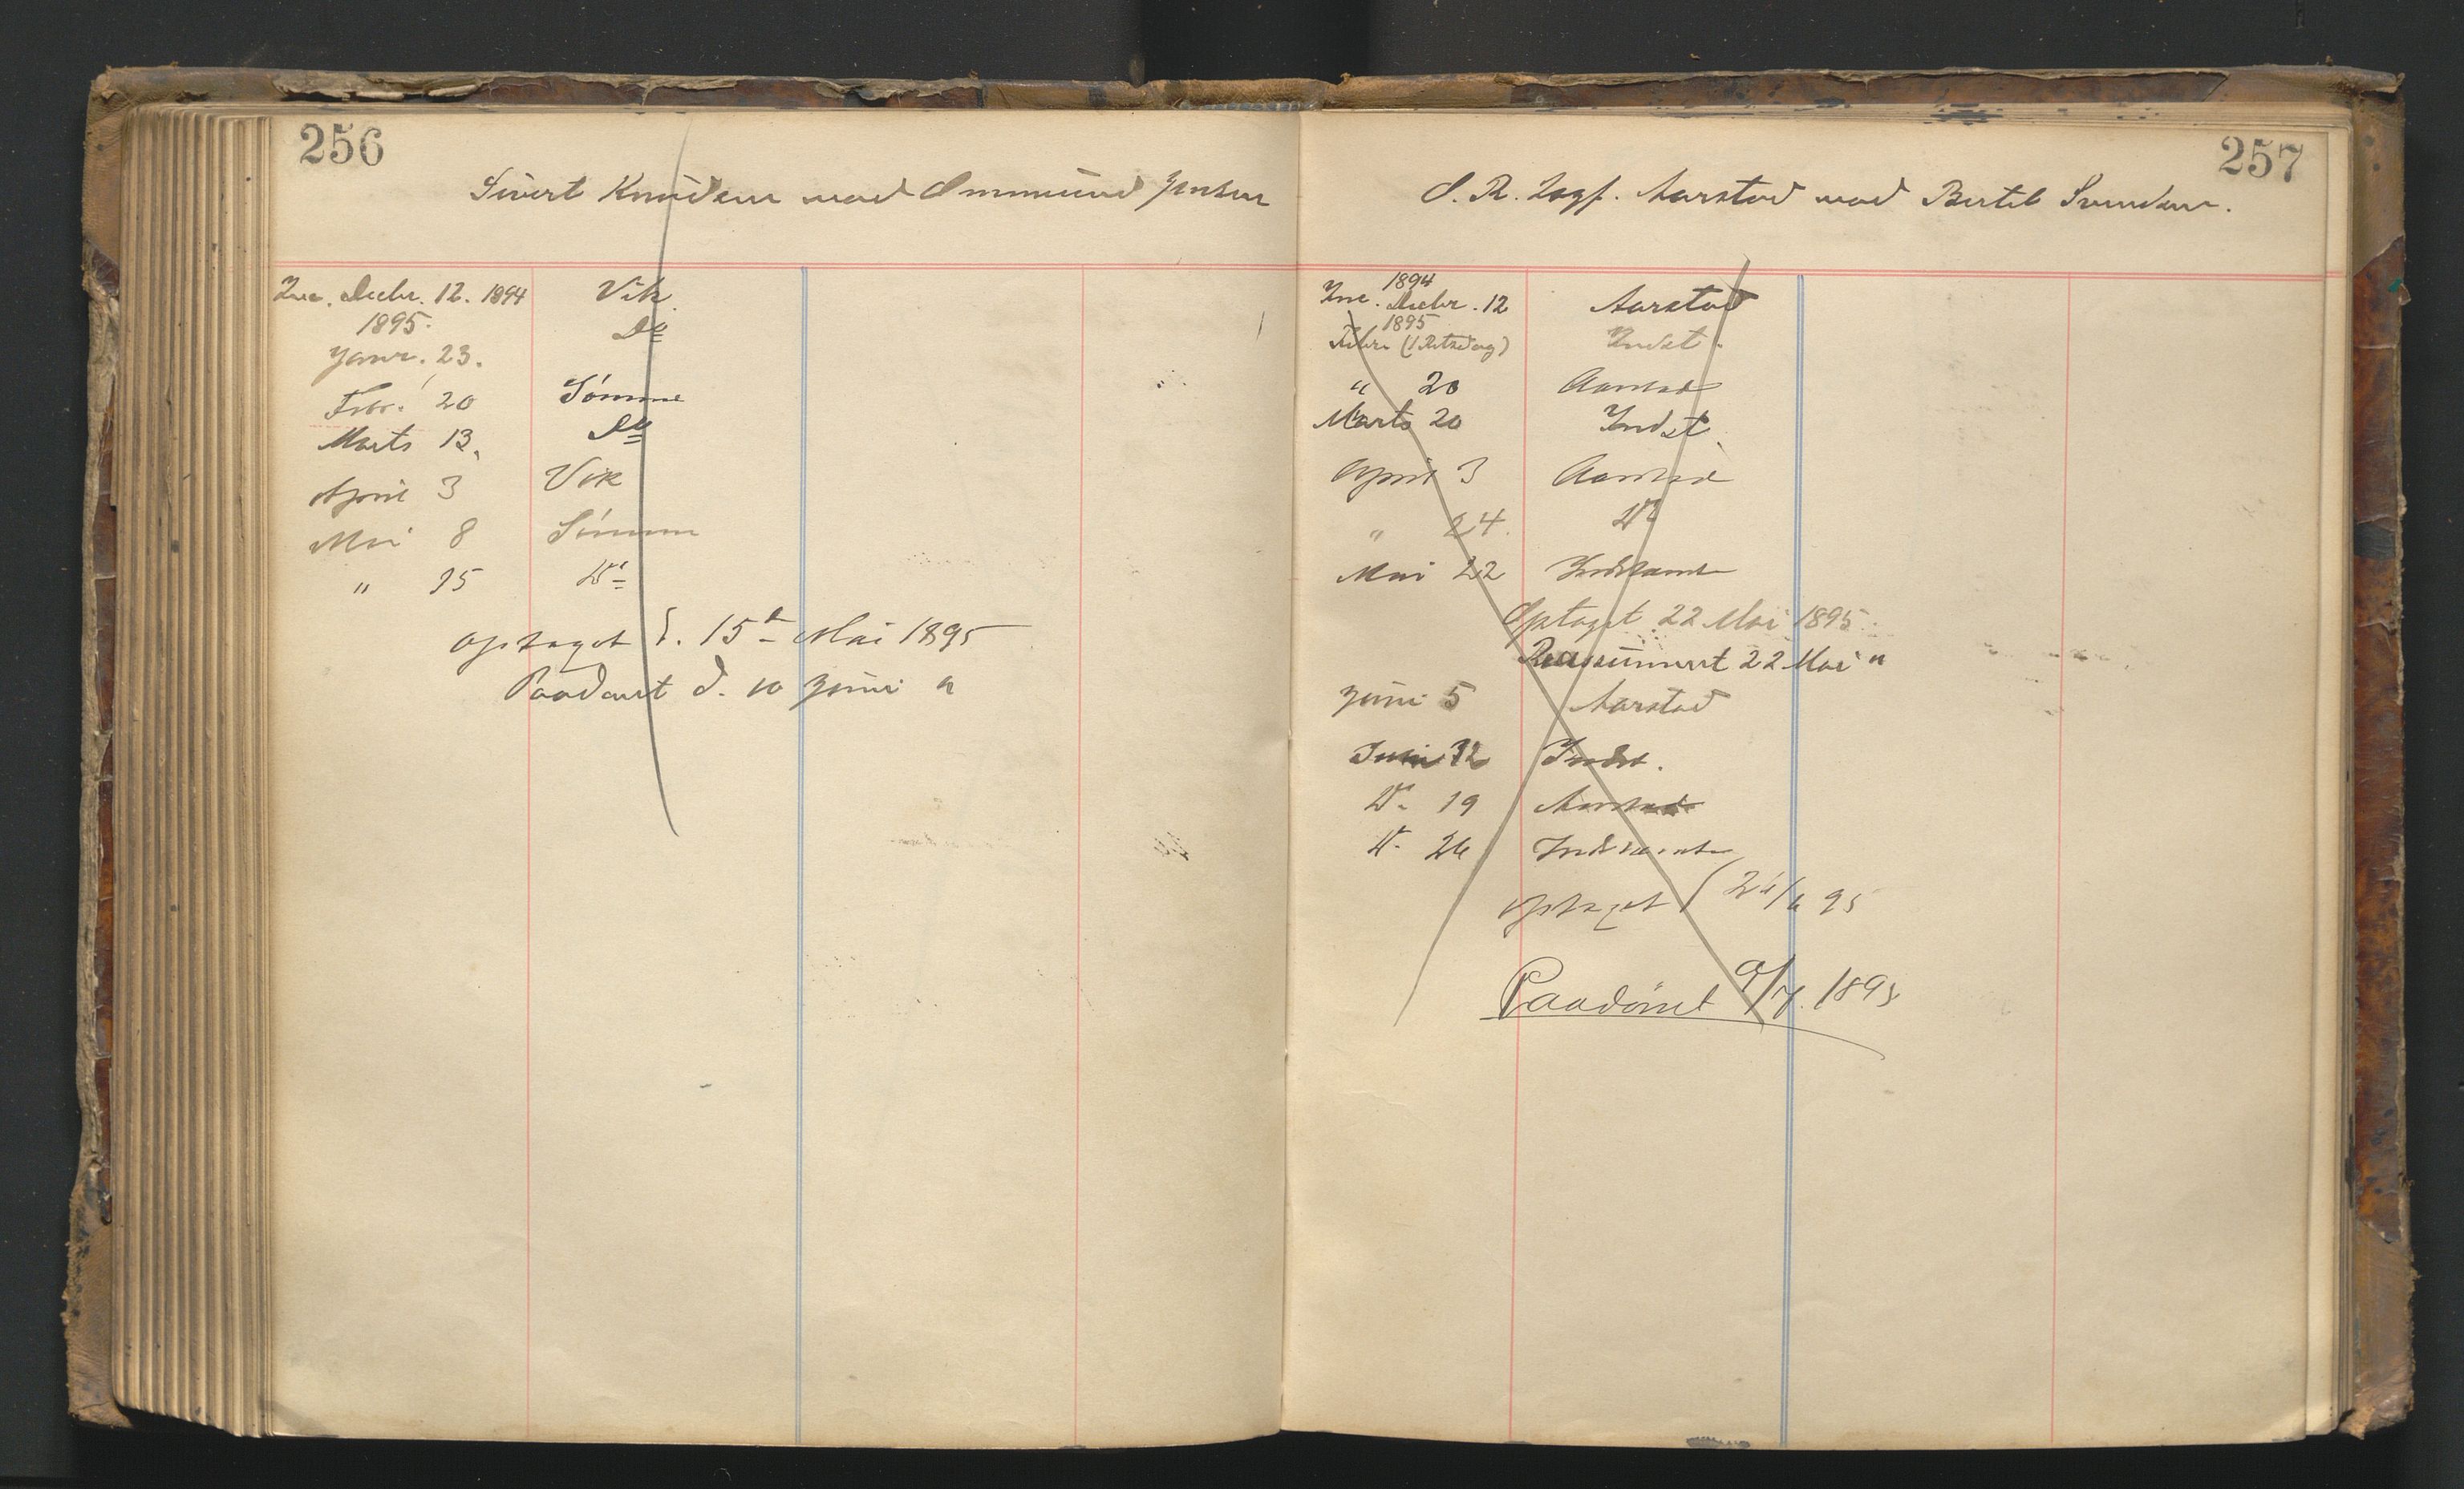 256
Sivert Knudsen mod Ommund Jensen
Inc. Decbr. 12. 1894 Vik
1895. Do
Janr. 23.
Febr. 20 Sömme
Marts 13. Do
April 3 Vik
Mai 8 Sömme
" 15 Do
optaget d. 15de Mai 1895
Paadömt d. 10 Juni "
257
O. R. Sagf. Aarstad mod Bertel Svendsen.
1894
Inc. Decbr. 12 Aarstad
1895
Febr. (1 Retsdag) Indst.
" 20 Aarstad
Marts 20 Indst.
April 3 Aarstad
" 24. Do
Mai 22 Indstevnte
Optaget 22 Mai 1895.
Reassumert 22 Mai "
Juni 5 Aarstad
Juni 12 Indst.
Do 19 Aarstad
Do 26 Indstevnte
optaget 26/6 95
Paadömt 9/7. 1895